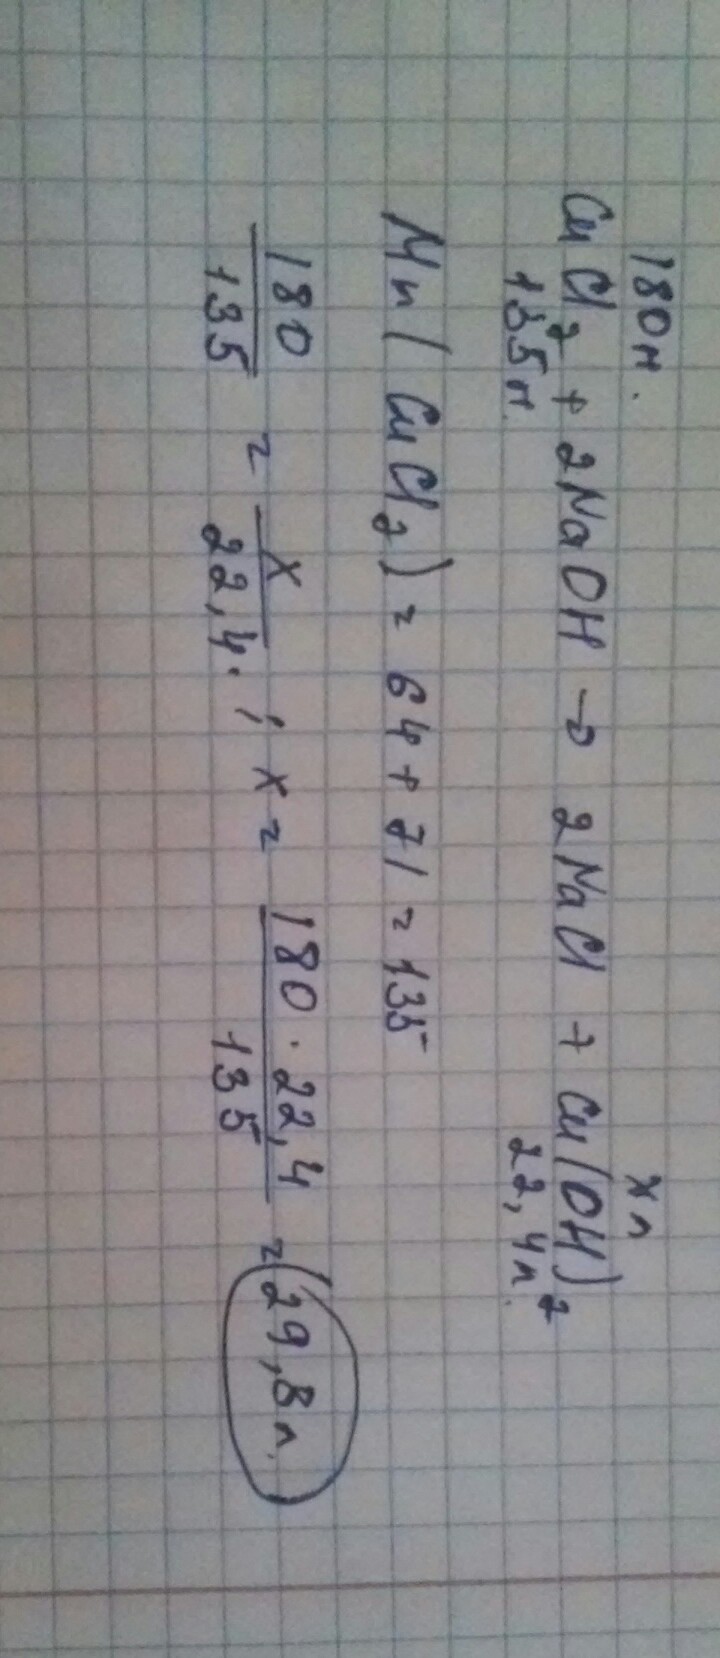 180г. xл
CuCl₂ + 2NaOH → 2NaCl + Cu(OH)₂
135г. 22,4л.
Mr(CuCl₂) = 64 + 71 = 135
180/135 = x/22,4. ; x = 180 · 22,4/135 = 29,8л.